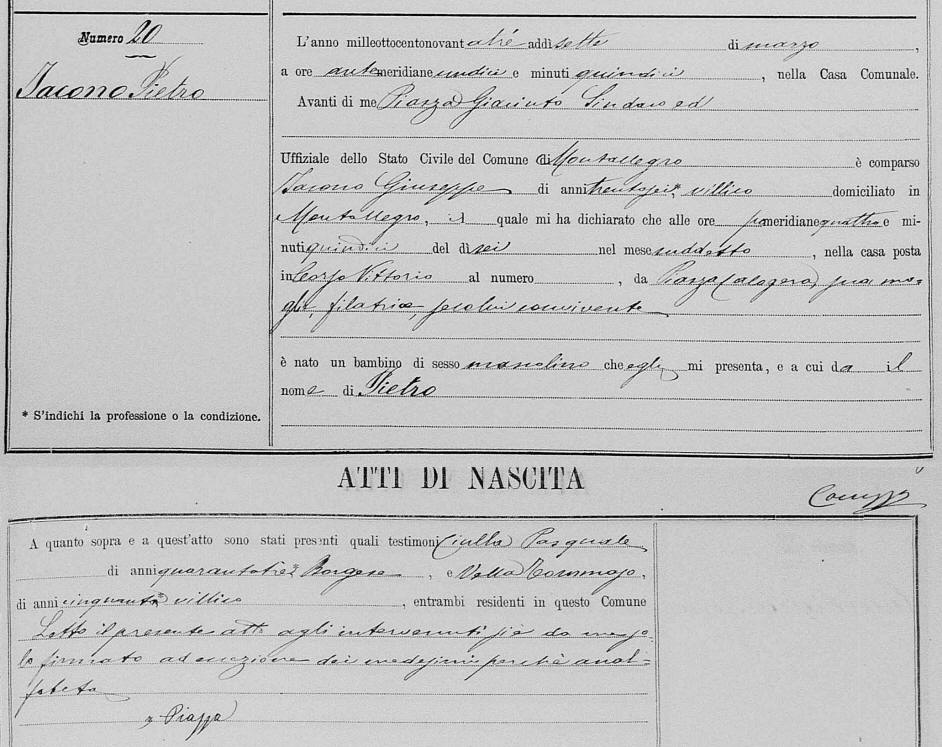 Numero 20
Iacono Pietro
* S'indichi la professione o la condizione.
L'anno milleottocentonovantatré addì sette di marzo,
a ore antemeridiane undici e minuti quindici, nella Casa Comunale.
Avanti di me Piazza Giacinto Sindaco ed
Uffiziale dello Stato Civile del Comune di Montallegro è comparso
Iacono Giuseppe di anni trentasei, villico domiciliato in
Montallegro, il quale mi ha dichiarato che alle ore pomeridiane quattro e mi-
nuti quindici del dì sei nel mese suddetto, nella casa posta
in Corso Vittorio al numero, da Piazza Calogera, sua mo-
glie, filatrice, secolui convivente
è nato un bambino di sesso mascolino che egli mi presenta, e a cui da il
nome di Pietro
ATTI DI NASCITA
A quanto sopra e a quest'atto sono stati presenti quali testimoni Ciulla Pasquale
di anni quarantatre, Borgese, e Vella Tommaso,
di anni cinquanta villico, entrambi residenti in questo Comune
Letto il presente atto agli intervenuti si è da me so-
lo firmato ad eccezione dei medesimi perchè anal-
fabeta
Piazza